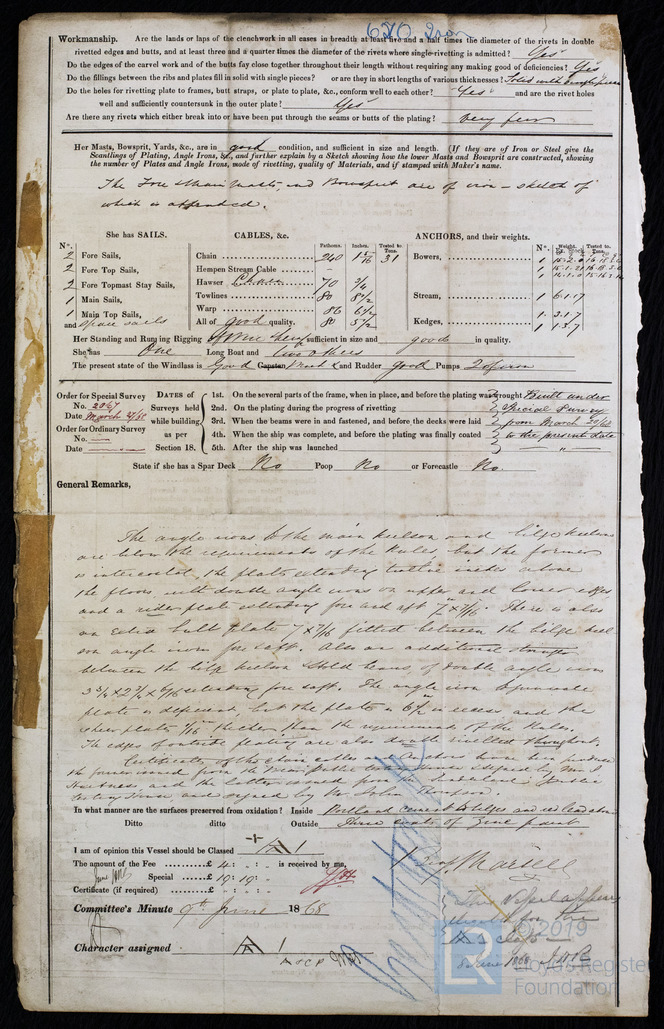 680 Iron
Workmanship. Are the lands or laps of the clenchwork in all cases in breadth at least five and a half times the diameter of the rivets in double
rivetted edges and butts, and at least three and a quarter times the diameter of the rivets where single-rivetting is admitted? Yes
Do the edges of the carvel work and of the butts fay close together throughout their length without requiring any making good of deficiencies? Yes
Do the fillings between the ribs and plates fill in solid with single pieces? or are they in short lengths of various thicknesses? Solid with single pieces
Do the holes for rivetting plate to frames, butt straps, or plate to plate, &c., conform well to each other? Yes and are the rivet holes
well and sufficiently countersunk in the outer plate? Yes
Are there any rivets which either break into or have been put through the seams or butts of the plating? very few
Her Masts, Bowsprit, Yards, &c., are in good condition, and sufficient in size and length. (If they are of Iron or Steel give the
Scantlings of Plating, Angle Irons, &c., and further explain by a Sketch showing how the lower Masts and Bowsprit are constructed, showing
the number of Plates and Angle Irons, mode of rivetting, quality of Materials, and if stamped with Maker's name.
The Fore & Main Masts, and Bowsprit are of iron – sketch of
which is appended.
She has SAILS. CABLES, &c. Fathoms. Inches. Tested to Tons. ANCHORS, and their weights. Nº. Weight. Ex. Stock. Tested to Tons.
Nº.
2 Fore Sails, Chain 240 1 5/16 31 Bowers, 1
2 Fore Top Sails, Hempen Stream Cable 1
2 Fore Topmast Stay Sails, Hawser Chain 70 3/4 1
1 Main Sails, Towlines 80 8 1/2 Stream, 1 6.1.17
1 Main Top Sails, Warp 86 6 1/2 1 3.1.7
and spare sails All of good quality. 80 5 1/2 Kedges, 1 1.3.7
Her Standing and Running Rigging of Wire & Hemp sufficient in size and good in quality.
She has One Long Boat and two others
The present state of the Windlass is Good Capstan and Rudder good Pumps 2 of iron
Order for Special Survey
No. 2067
Date March 21/68
Order for Ordinary Survey
No. —
Date —
DATES of Surveys held while building, as per Section 18.
1st. On the several parts of the frame, when in place, and before the plating was wrought Built under
2nd. On the plating during the progress of rivetting Special Survey
3rd. When the beams were in and fastened, and before the decks were laid from March
4th. When the ship was complete, and before the plating was finally coated to the present date
5th. After the ship was launched "
State if she has a Spar Deck No Poop No or Forecastle No.
General Remarks,
The angle irons to the main keelson and bilge keelsons
are below the requirements of the Rules, but the former
is intercostal, the plate extending twelve inches above
the floors, with double angle irons on upper and lower edges
and a rider plate extending fore and aft 7" x 9/16". There is also
an extra bulb plate 7 x 7/16 fitted between the bilge keel-
son angle irons fore & aft. Also an additional stringer
between the bilge keelson & Hold beams, of double angle iron
extending fore & aft. The angle iron to gunwale
plate is deficient, but the plate is 6 1/2 in excess and the
sheer plate 1/16 thicker than the requirements of the Rules.
The edges of outside plating are also double rivetted throughout.
Certificates of the chain cables and Anchors have been produced
the former issued from the testing house signed by Mr J.
Hartness, and the latter issued from the Sunderland Public
testing house, and signed by Mr John Thompson.
In what manner are the surfaces preserved from oxidation? Inside Portland cement to bilges and red lead above
Ditto ditto Outside Three coats of Zinc paint
I am of opinion this Vessel should be Classed A 1
The amount of the Fee £ 4 : - : - is received by me,
Special £ 19 : 19 : -
Certificate (if required) £ - : - : -
Committee's Minute 9th June 1868
Character assigned A 1
This Vessel appears
eligible for the
A 1 class
June 1868
© 2019
Lloyd's Register
Foundation
LR